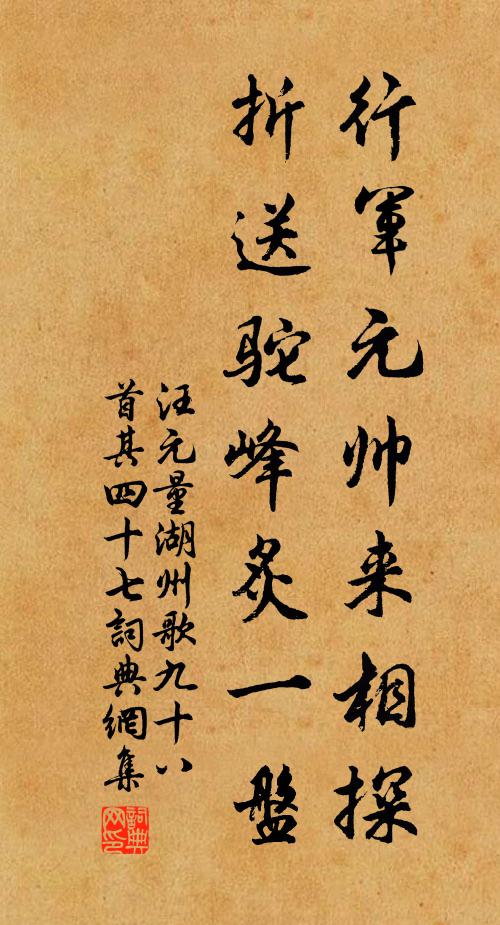 行軍元帅来相探
折送駝峰炙一盤
汪元量湖州歌九十八
首其四十七詞典網集
詞典网印